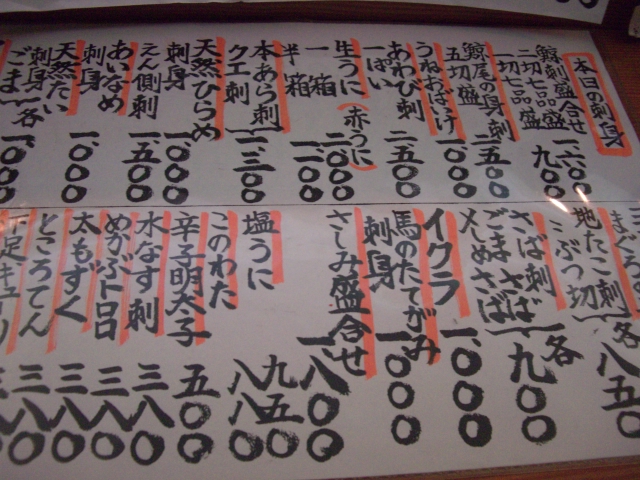 本日の刺身
鯨刺盛合せ
二切七品盛 一、六〇〇
一切七品盛 九〇〇
鯨尾の身刺
五切盛 二、五〇〇
うねおばけ 一、〇〇〇
あわび刺
一ぱい 二、五〇〇
生うに(赤うに)
一箱 二、〇〇〇
半箱 一、二〇〇
本あら刺
クエ刺 一、三〇〇
天然ひらめ
刺身 一、〇〇〇
えん側刺 一、五〇〇
あいなめ
刺身
天然たい
刺身 一、〇〇〇
ごま 各 一、〇〇〇
まぐろ
地たこ刺
〃ぶつ切 各 八五〇
さば刺
ごまさば
〆めさば 各 九〇〇
イクラ 一、〇〇〇
馬のたてがみ
刺身 一、〇〇〇
さしみ盛合せ 一、八〇〇
塩うに 九五〇
このわた 八八〇
辛子明太子 五〇〇
水なす刺 三八〇
めかぶトロロ 三八〇
太もずく 三八〇
ところてん 三八〇
下足キュウリ